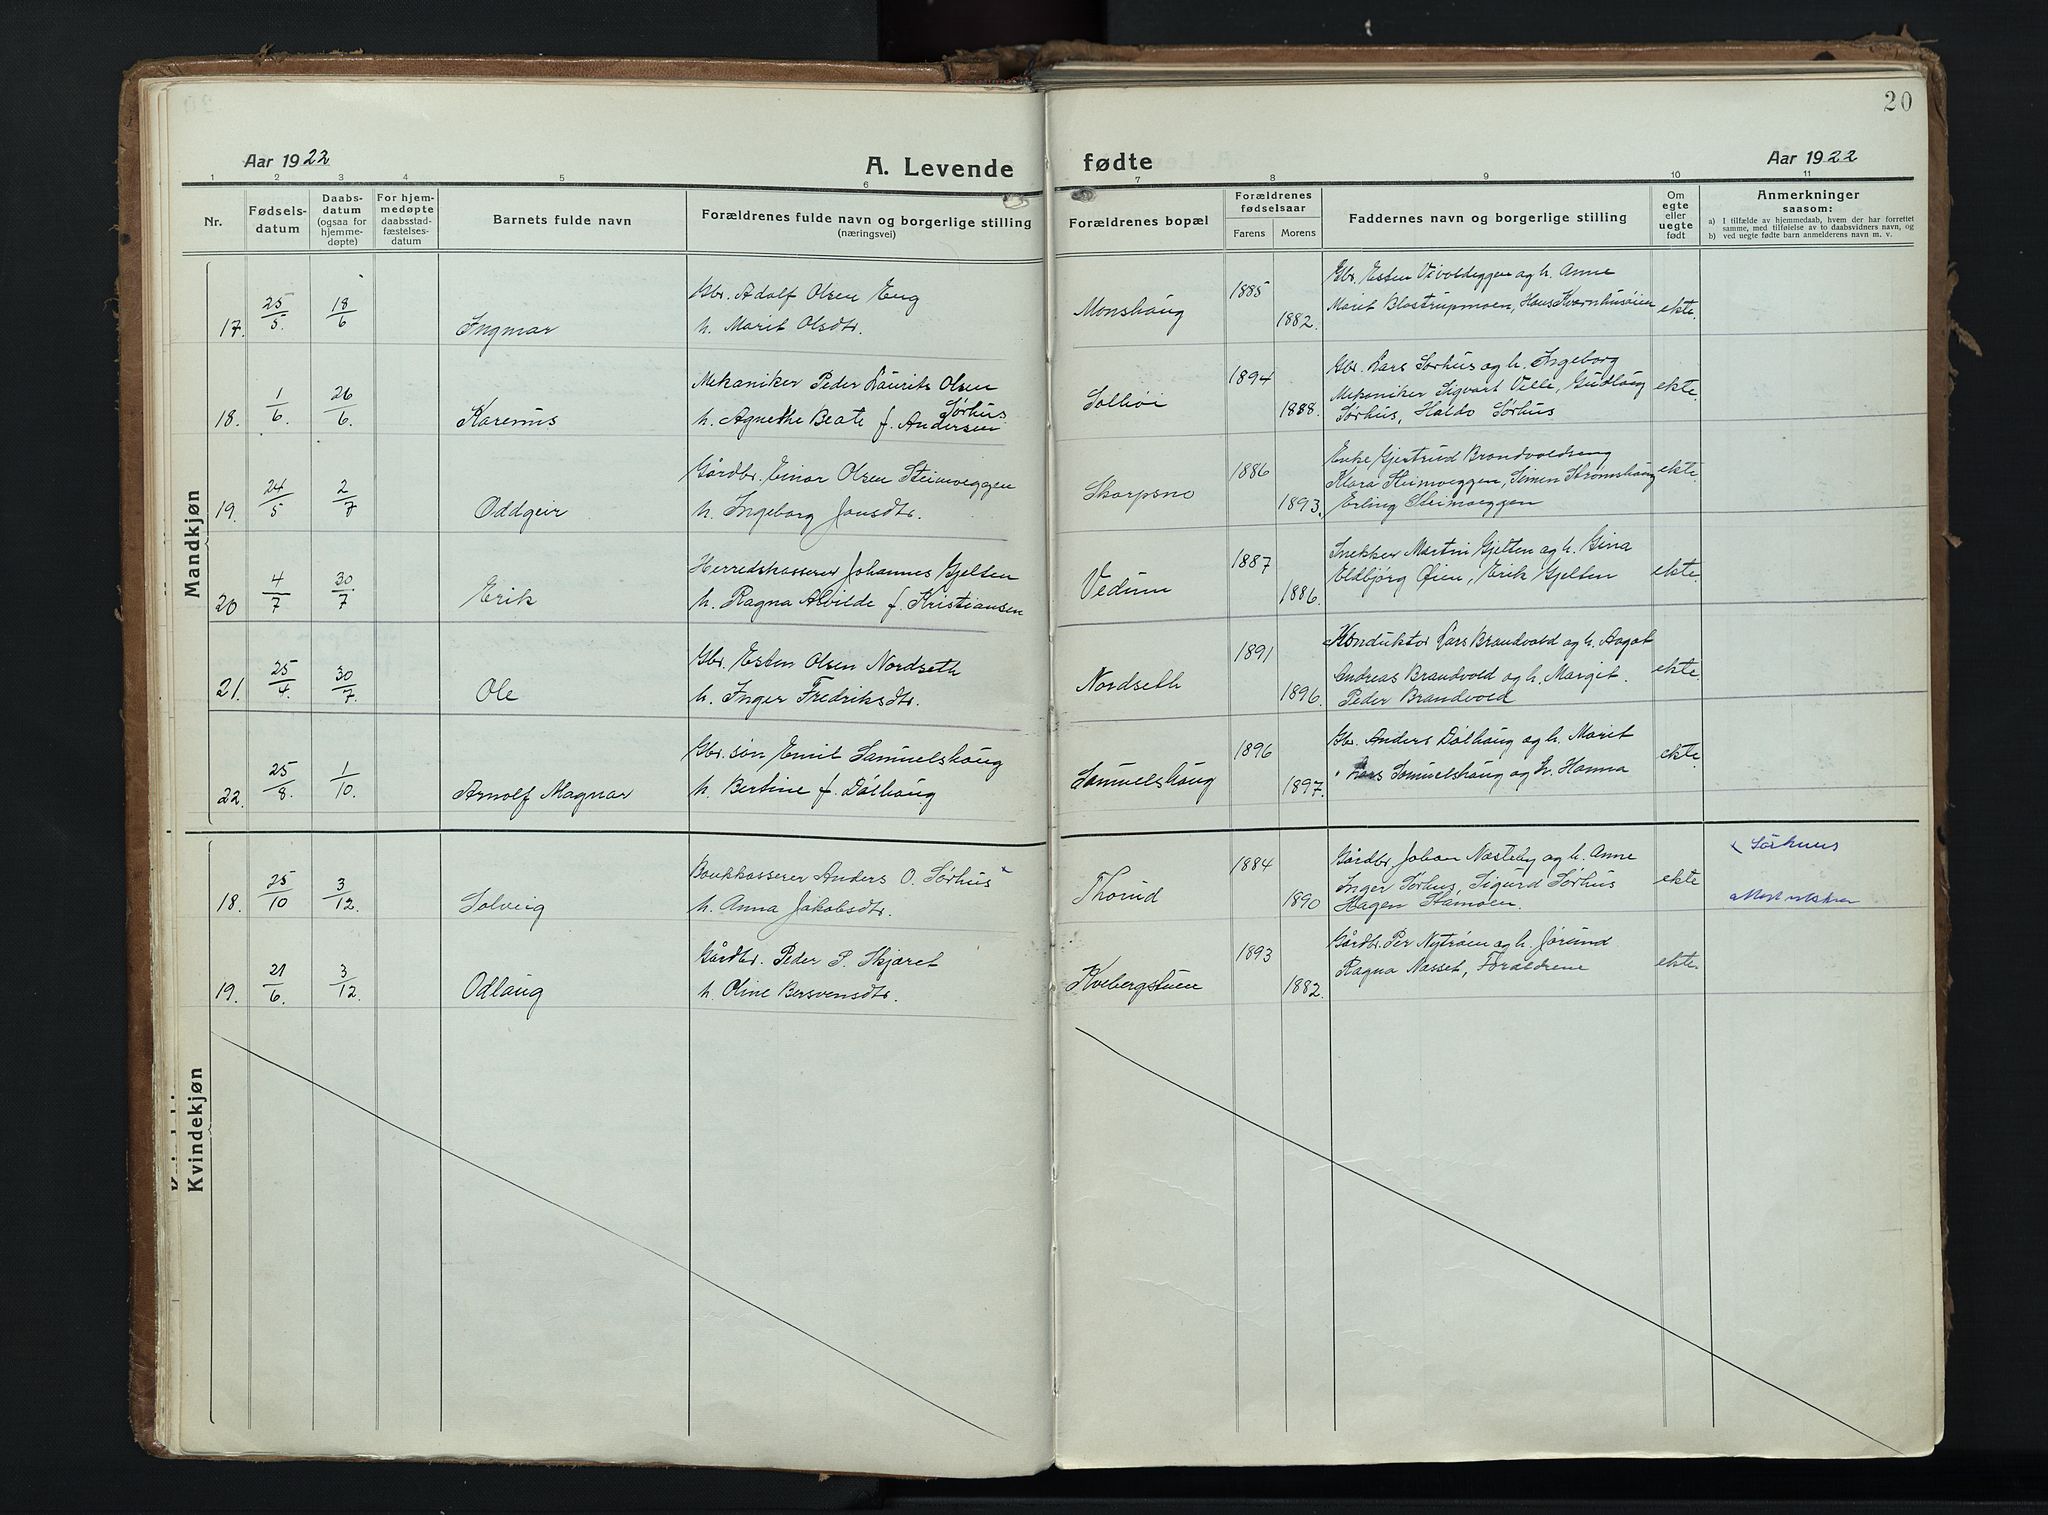 20
Aar 1922
A. Levende
fødte
Aar 1922
1 2 3 4 5 6 7 8 9 10 11
Nr.
Fødsels-
datum
Daabs-
datum
(ogsaa for
hjemme-
døpte)
For hjem-
medøpte
daabsstad-
fæstelses-
datum
Barnets fulde navn
Forældrenes fulde navn og borgerlige stilling
(næringsvei)
Forældrenes bopæl
Forældrenes
fødselsaar
Farens Morens
Faddernes navn og borgerlige stilling
Om
egte
eller
uegte
født
Anmerkninger
saasom:
a) I tilfælde av hjemmedaab, hvem der har forrettet
samme, med tilføielse av to daabsvidners navn, og
b) ved uegte fødte barn anmelderens navn m. v.
Mandkjøn
17. 25/5. 18/6 Ingmar
Gbr. Adolf Olsen Eng
h. Marit Olsdtr.
Monshaug 1885 1882.
Gbr. Esten Vivoldeggen og h. Anne
Marit Blostrupmoen, Hans Kvernhusøien
ekte.
18. 1/6. 26/6. Karenus
Mekaniker Peder Laurits Olsen
Sørhus
h. Agnethe Beate f. Andersen
Solliöi 1894 1888.
Gbr. Lars Sørhus og h. Ingeborg
Mekaniker Sigvart Ville, Gudlaug
Sørhus, Haldo Sørhus
ekte.
19. 24/5 2/7 Oddgeir
Gårdbr. Einar Olsen Steimoeggen
h. Ingeborg Jonsdtr.
Skarpsno 1886 1893.
Enke Gjertrud Brandvoldseng
Klara Steimoeggen, Simen Strømshaug
Erling Steimoeggen
ekte.
20 4/7 30/7 Erik
Herredskasserer Johannes Gjelten
h. Ragna Alvilde f. Kristiansen
Vedum 1887 1886.
Snekker Martin Gjelten og h. Gina
Eldbjörg Øien, Erik Gjelten
ekte.
21. 25/4. 30/7. Ole
Gbr. Esten Olsen Nordseth
h. Inger Fredriksdtr.
Nordseth 1891 1896.
Konduktør Lars Brandvold og h. Aagot
Andreas Brandvold og h. Margit.
Peder Brandvold
ekte.
22. 25/8. 1/10. Arnolf Magnar
Gbr. søn Emil Samuelshaug
h. Bertine f. Dølhaug
Samuelshaug 1896 1897.
Gbr. Anders Dølhaug og h. Marit
" Lars Samuelshaug og h. Hanna
ekte.
Kvindekjøn
18. 25/10 3/12. Solveig
Bankkasserer Anders O. Sørhus ×
h. Anna Jakobsdtr.
Thorud 1884 1890
Gårdbr. Johan Næsteby og h. Anne
Inger Sørhus, Sigurd Sørhus
Hagen Stamoen.
ekte
× Sørhuus
19. 21/6. 3/12. Odlaug
Gårdbr. Peder P. Skjæret
h. Oline Bersvensdtr.
Kvebergstuen 1893 1882.
Gårdbr. Per Nytrøen og h. Jørund
Ragna Næsset, Forældrene
ekte.